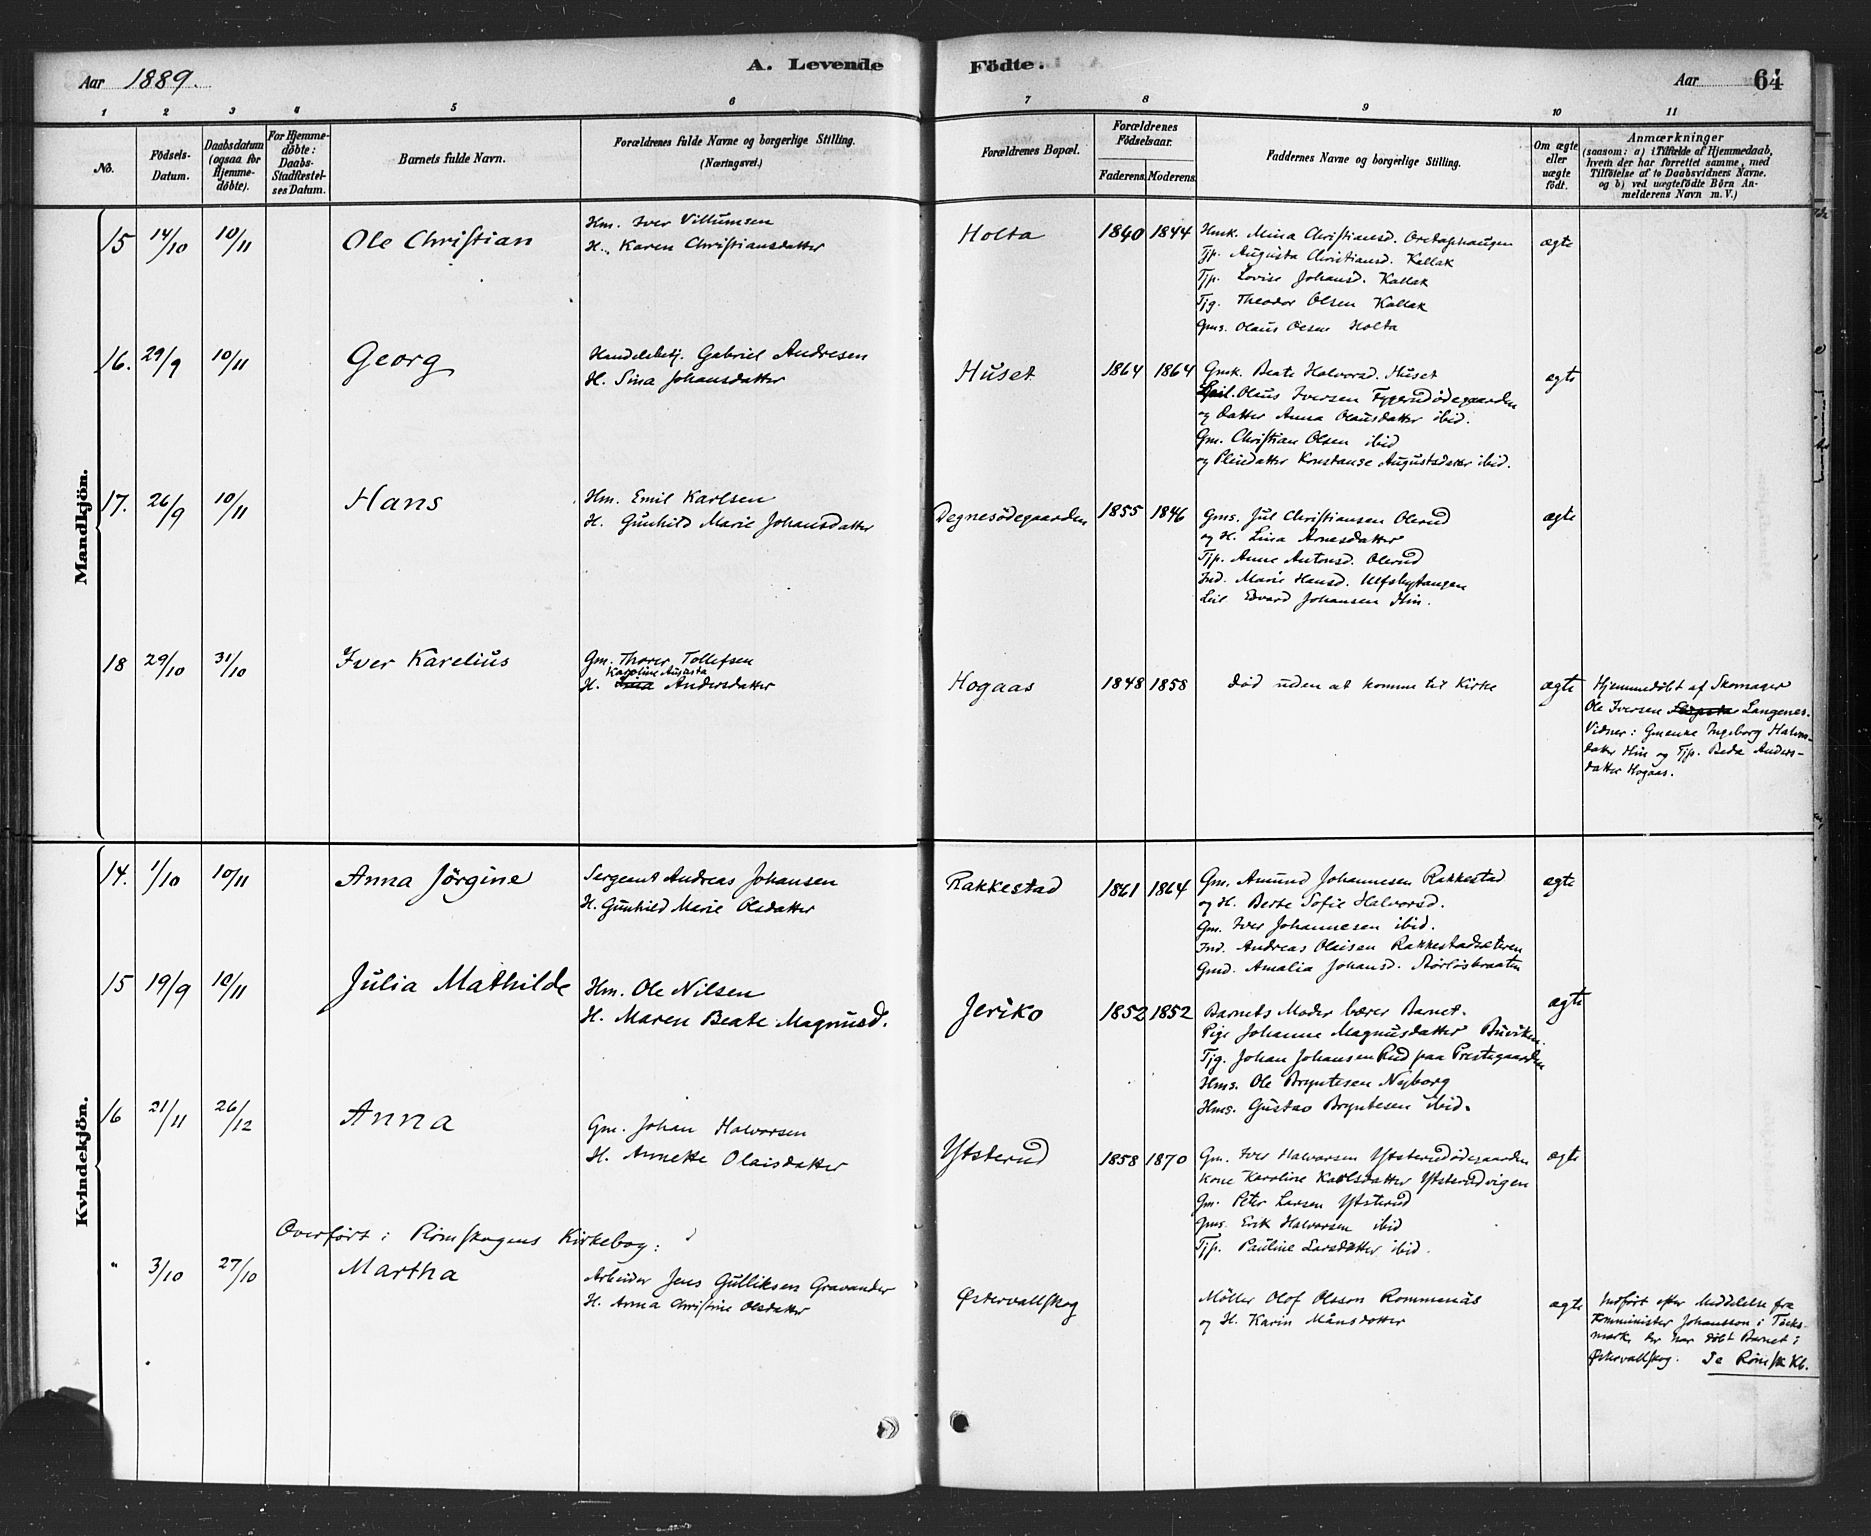 Aar 1889.
A. Levende Födte.
Aar 64
1 2 3 4 5 6 7 8 9 10 11
No.
Födsels-Datum.
Daabsdatum (ogsaa for Hjemme-döbte).
For Hjemme-döbte: Daabs-Stadfæstel-ses Datum.
Barnets fulde Navn.
Forældrenes fulde Navne og borgerlige Stilling.
(Næringsvei.)
Forældrenes Bopæl.
Forældrenes Födselsaar.
Faderens. Moderens.
Faddernes Navne og borgerlige Stilling.
Om ægte eller uægte födt.
Anmærkninger
(saasom: a) i Tilfælde af Hjemmedaab,
hvem der har forrettet samme, med
Tilföielse af to Daabsvidners Navne,
og b) ved uægtefödte Börn An-
melderens Navn m. V.)
Mandkjön.
15 14/10 10/11 Ole Christian
Hm. Iver Villumsen
H. Karen Christiansdatter
Holta 1840 1844
Hmk. Mina Christiansd.
Tjp. Augusta Christiansd. Kallak
Tjp. Lovise Johansd. Kallak
Tjg. Theodor Olsen Kallak
Gms. Olaus Olsen Holta
ægte
16. 29/9 10/11 Georg
Handelsbetj. Gabriel Andresen
H. Sina Johansdatter
Huset 1864 1864
Gmk. Beate Halvorsd. Huset
Olaus Iversen Tyggerudödegaarden
og Datter Anna Olausdatter ibid.
Gm. Christian Olsen ibid
og Pleiedatter Konstanse Augustsdatter ibid.
ægte
17. 26/9 10/11 Hans
Hm. Emil Karlsen
H. Gunhild Marie Johansdatter
Degnesödegaarden 1855 1846
Gms. Jul Christiansen Olerud
og H. Lina Arnesdatter
Tjp. Anne Antonsd. Olerud
Ind. Marie Hansd. Ulfsbytangen
Leil. Edvard Johansen Hin.
ægte
18 29/10 31/10 Iver Karelius
Gm. Thorer Tollefsen
Karoline Augusta
H. Andersdatter
Hogaas 1848 1858
Död uden at komme til Kirke
ægte
Hjemmedöbt af Skomager
Ole Iversen Langenes.
Vidner: Gmenke Ingeborg Halvors-
datter Hin og Tjp. Beda Anders-
datter Hogaas.
Kvindekjön.
14. 1/10 10/11 Anna Jörgine
Sergeant Andreas Johansen
H. Gunhild Marie Olsdatter
Rakkestad 1861 1864
Gm. Amund Johannesen Rakkestad
og H. Berte Sofie Halvorsd.
Gm. Iver Johannesen ibid.
Ind. Andreas Olaisen Rakkestadsæteren
Gmd. Amalia Johansd. Störlösbraaten
ægte
15 19/9 10/11 Julia Mathilde
Hm. Ole Nilsen
H. Maren Beate Magnusd.
Jeriko 1852 1852
Barnets Moder bærer Barnet.
Pige Johanne Magnusdatter Buviken.
Tjg. Johan Johansen Rud paa Prestegaarden
Hms. Ole Bryntesen Nyborg
Hms. Gustav Bryntesen ibid.
ægte
16 21/11 26/12 Anna
Gm. Johan Halvorsen
H. Annette Olaisdatter
Ytsterud 1858 1870
Gm. Iver Halvorsen Ytsterudödegaarden
Kone Karoline Karlsdatter Ytsterudvigen
Gm. Peter Larsen Ytsterud
Gms. Erik Halvorsen ibid
Tjp. Pauline Larsdatter ibid.
ægte
Overfört i Römskogens Kirkebog:
" 3/10 27/10 Martha
Arbeider Jens Gulliksen Gravander
H. Anna Christine Olsdatter
Østervallskog
Møller Olof Olsson Rommenäs
og H. Karin Månsdotter
ægte
Indfört efter Meddelelse fra
Komminister Johansson i Töcks-
mark, der har döbt Barnet i
Østervallskog. Se Römsk Kb.